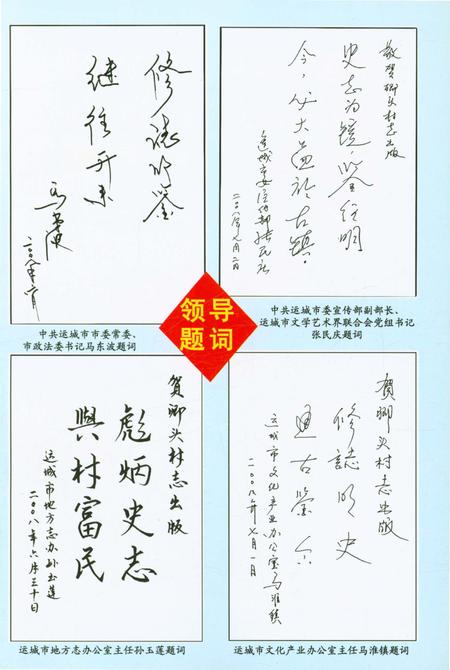 修誌明鉴
继往开来
敬贺卿头村志出版
史志为镜，鉴往明
今，
二〇〇八年七月二日
领导
题词
中共运城市市委常委、
市政法委书记马东波题词
中共运城市委宣传部副部长、
运城市文学艺术界联合会党组书记
张民庆题词
賀卿头村志出版
彪炳史志
與村富民
运城市地方志办孙玉莲
二〇〇八年六月三十日
賀卿头村志出版
修誌明史
通古鉴今
运城市文化产业办公室马淮镇
二〇〇八年七月一日
运城市地方志办公室主任孙玉莲题词
运城市文化产业办公室主任马淮镇题词